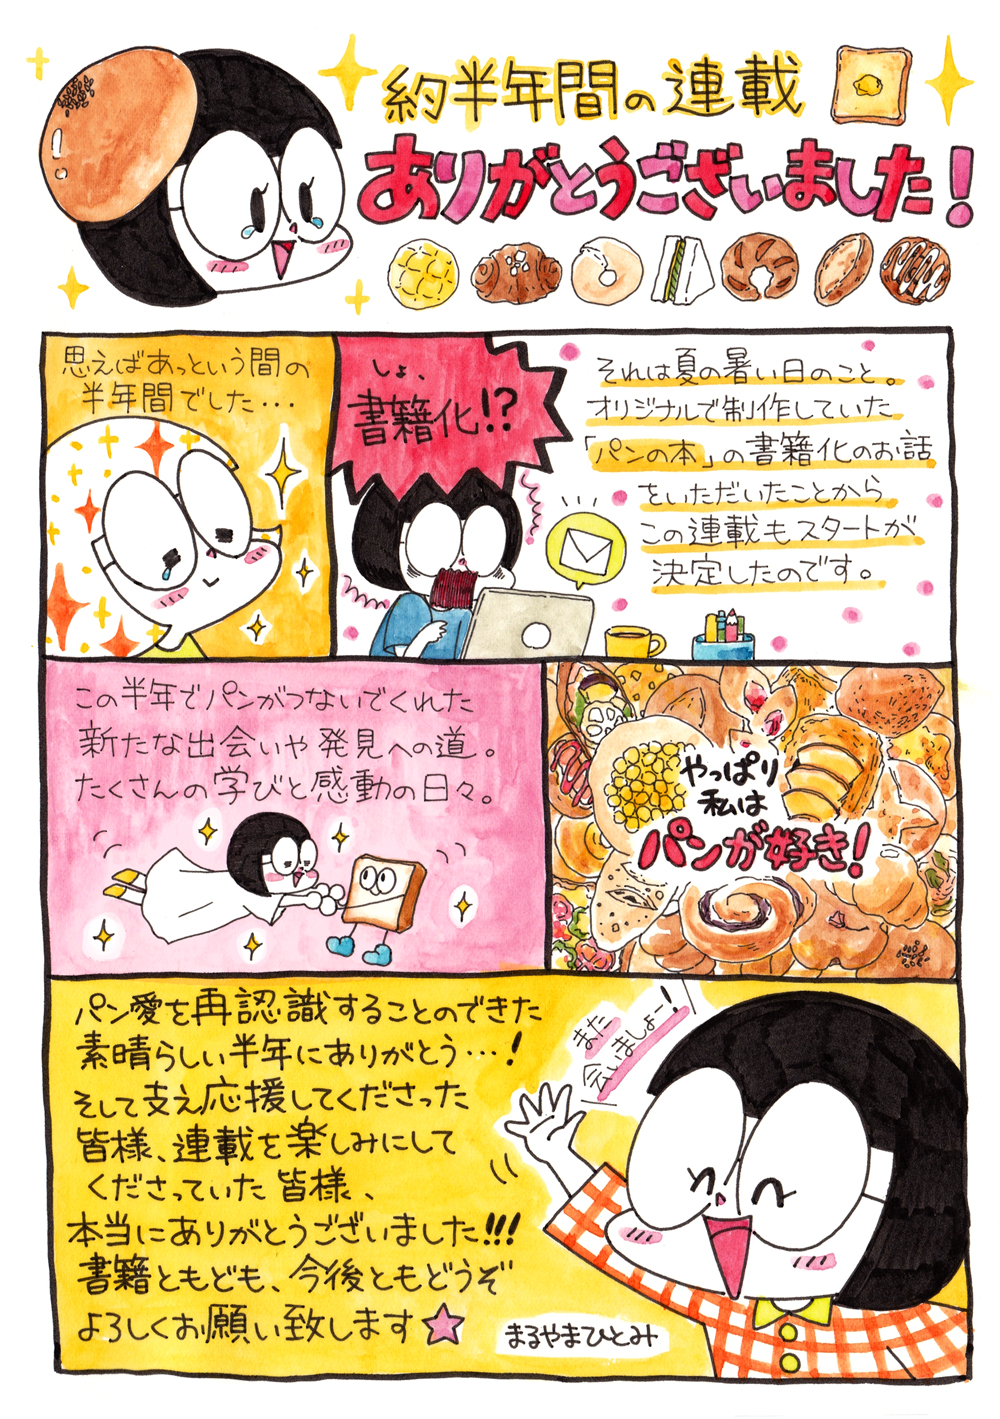 約半年間の連載
ありがとうございました!
思えばあっという間の
半年間でした・・・
しょ、
書籍化!?
それは夏の暑い日のこと。
オリジナルで制作していた
「パンの本」の書籍化のお話
をいただいたことから
この連載もスタートが
決定したのです。
この半年でパンがつないでくれた
新たな出会いや発見への道。
たくさんの学びと感動の日々。
やっぱり
私は
パンが好き!
パン愛を再認識することのできた
素晴らしい半年にありがとう…!
そして支え応援してくださった
皆様、連載を楽しみにして
くださっていた皆様、
本当にありがとうございました!!!
書籍ともども、今後ともどうぞ
よろしくお願い致します☆
また
会いましょー!
まるやまひとみ